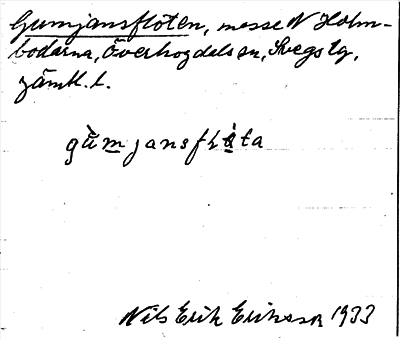 Gumjansflöten, mosse N Holm-
bodarna, Överhogdals sn, Svegs tg,
Jämtl. l.
gùmjansflöta
Nils Erik Eriksson 1933